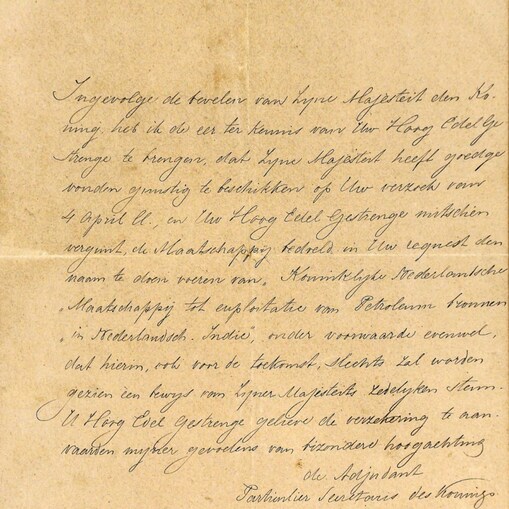 Ingevolge de bevelen van Zyne Majesteit den Ko-
ning, heb ik de eer ter kennis van Uw Hoog Edel Ge
strenge te brengen, dat Zyne Majesteit heeft goedge
vonden gunstig te beschikken op Uw verzoek van
4 April ll., en Uw Hoog Edel Gestrenge mitsdien
vergunt, de Maatschappij bedoeld in Uw request den
naam te doen voeren van "Koninklyke Nederlandsche
"Maatschappij tot exploitatie van Petroleum bronnen
"in Nederlandsch-Indie", onder voorwaarde evenwel,
dat hierin, ook voor de toekomst, slechts zal worden
gezien een bewys van Zyner Majesteits zedelyken steun.
U Hoog Edel Gestrenge gelieve de verzekering te aan-
vaarden mijner gevoelens van bizondere hoogachting
de Adjudant
Particulier Secretaris des Konings